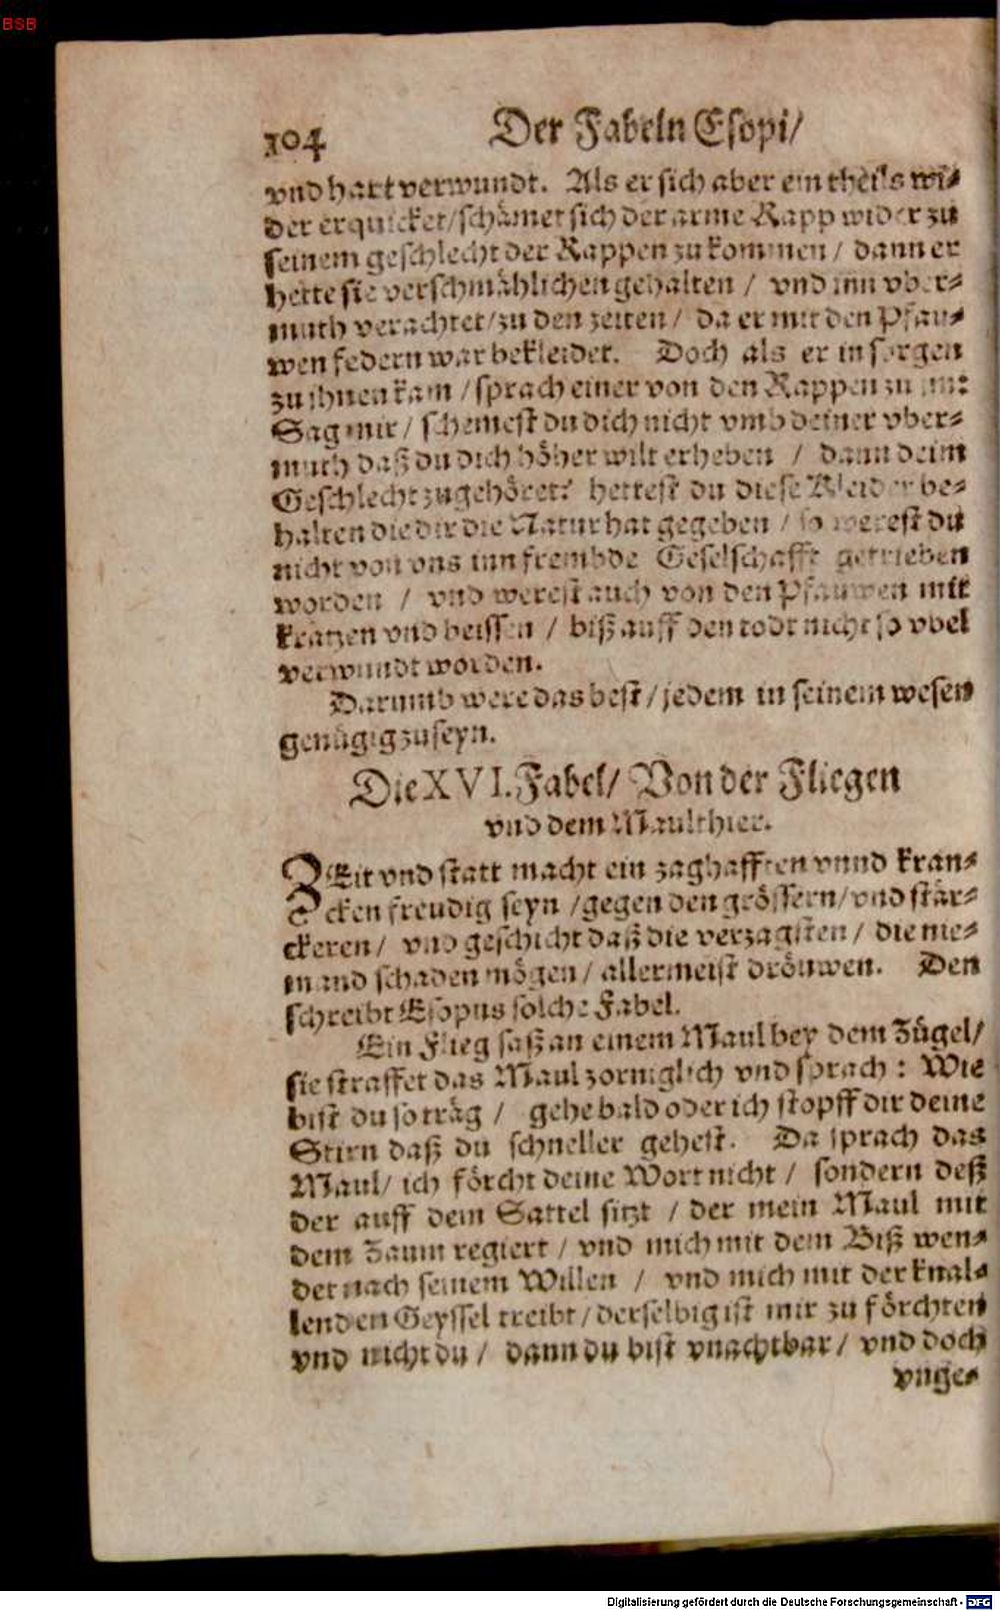 BSB
104 Der Fabeln Esopi/
vnd hart verwundt. Als er sich aber ein theils wi-
der erquicket/schämet sich der arme Rapp wider zu
seinem geschlecht der Rappen zu kommen / dann er
hette sie verschmählichen gehalten / vnd inn vber-
muth verachtet/zu den zeiten / da er mit den Pfau-
wen federn war bekleidet. Doch als er in sorgen
zu ihnen kam /sprach einer von den Rappen zu im:
Sag mir / schemest du dich nicht vmb deiner vber-
muth daß du dich höher wilt erheben / dann deim
Geschlecht zugehöret? hettest du diese Kleider be-
halten die dir die Natur hat gegeben / so werest du
nicht von vns inn frembde Geselschafft getrieben
worden / vnd werest auch von den Pfauwen mit
kratzen vnd beissen / biß auff den todt nicht so vbel
verwundt worden.
Darumb were das best/jedem in seinem wesen
genügig zu seyn.
Die XVI. Fabel/ Von der Fliegen
vnd dem Maulthier.
ZEit vnd statt macht ein zaghafften vnnd kran-
cken freudig seyn /gegen den grössern/vnd stär-
ckeren / vnd geschicht daß die verzagsten / die nie-
mand schaden mögen / allermeist dröuwen. Den
schreibt Esopus solche Fabel.
Ein Flieg saß an einem Maul bey dem Zügel/
sie straffet das Maul zorniglich vnd sprach : Wie
bist du so träg / gehe bald oder ich stopff dir deine
Stirn daß du schneller gehest. Da sprach das
Maul/ ich förcht deine Wort nicht / sondern deß
der auff dem Sattel sitzt / der mein Maul mit
dem Zaum regiert / vnd mich mit dem Biß wen-
det nach seinem Willen / vnd mich mit der knal-
lenden Geyssel treibt/derselbig ist mir zu förchten
vnd nicht du / dann du bist vnachtbar/ vnd doch
vnge-
Digitalisierung gefördert durch die Deutsche Forschungsgemeinschaft - DFG